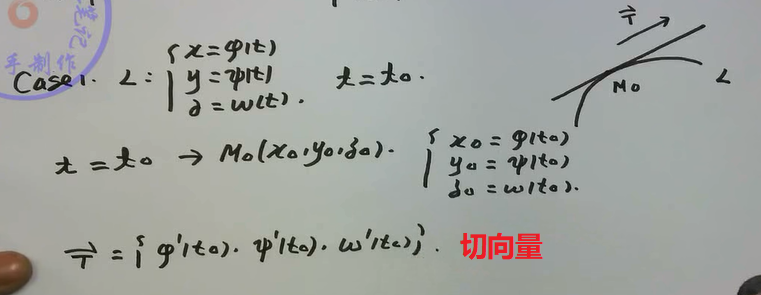 笔记
手制作
Case1. L: { x=φ(t) y=ψ(t) z=ω(t). t=t₀.
T⃗
M₀
L
t=t₀ → M₀(x₀,y₀,z₀). { x₀=φ(t₀) y₀=ψ(t₀) z₀=ω(t₀).
T⃗={φ'(t₀).ψ'(t₀).ω'(t₀)}. 切向量